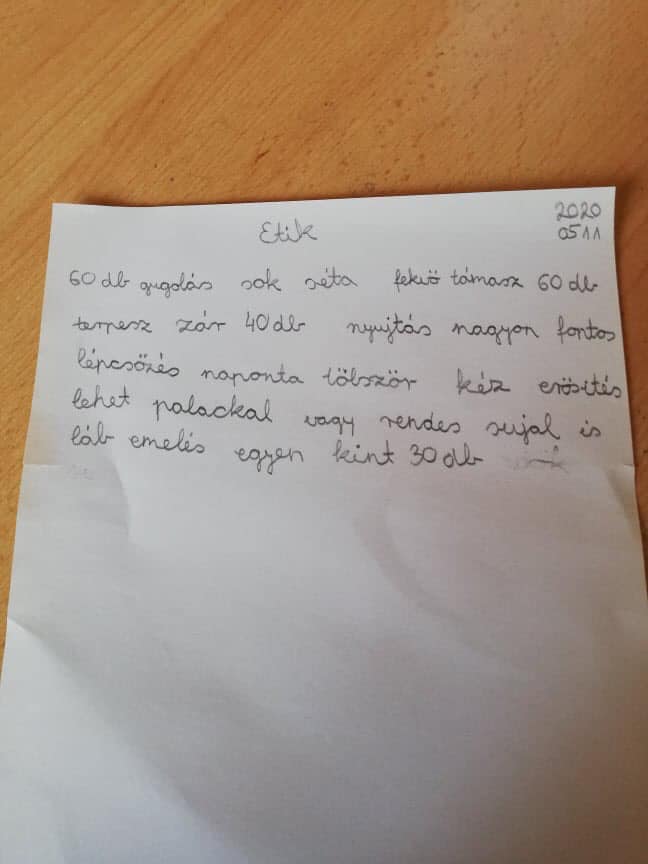 Etik
2020
05 11
60 db gugolás sok séta fekvő támasz 60 db
terpesz zár 40 db nyujtás nagyon fontos
lépcsőzés naponta tölször kéz erősítés
lehet palackal vagy rendes sujal is
láb emelés egyen kint 30 db